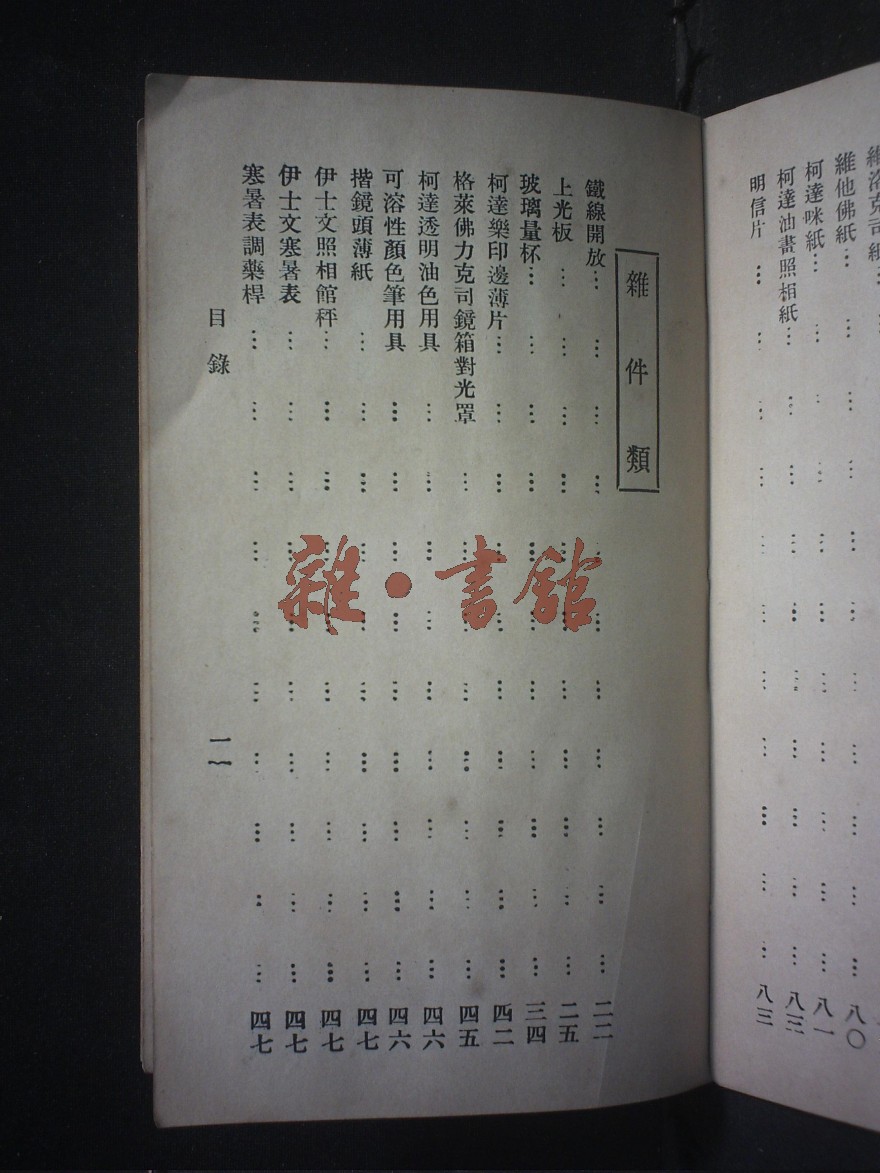 維洛克司紙
維他佛紙 八〇
柯達咪紙 八一
柯達油畫照相紙 八三
明信片 八三
雜件類
鐵線開放 二二
上光板 二五
玻璃量杯 三四
柯達樂印邊薄片 四二
格萊佛力克司鏡箱對光罩 四五
柯達透明油色用具 四六
可溶性顏色筆用具 四六
揩鏡頭薄紙 四七
伊士文照相館秤 四七
伊士文寒暑表 四七
寒暑表調藥桿 四七
目錄
雜·書館